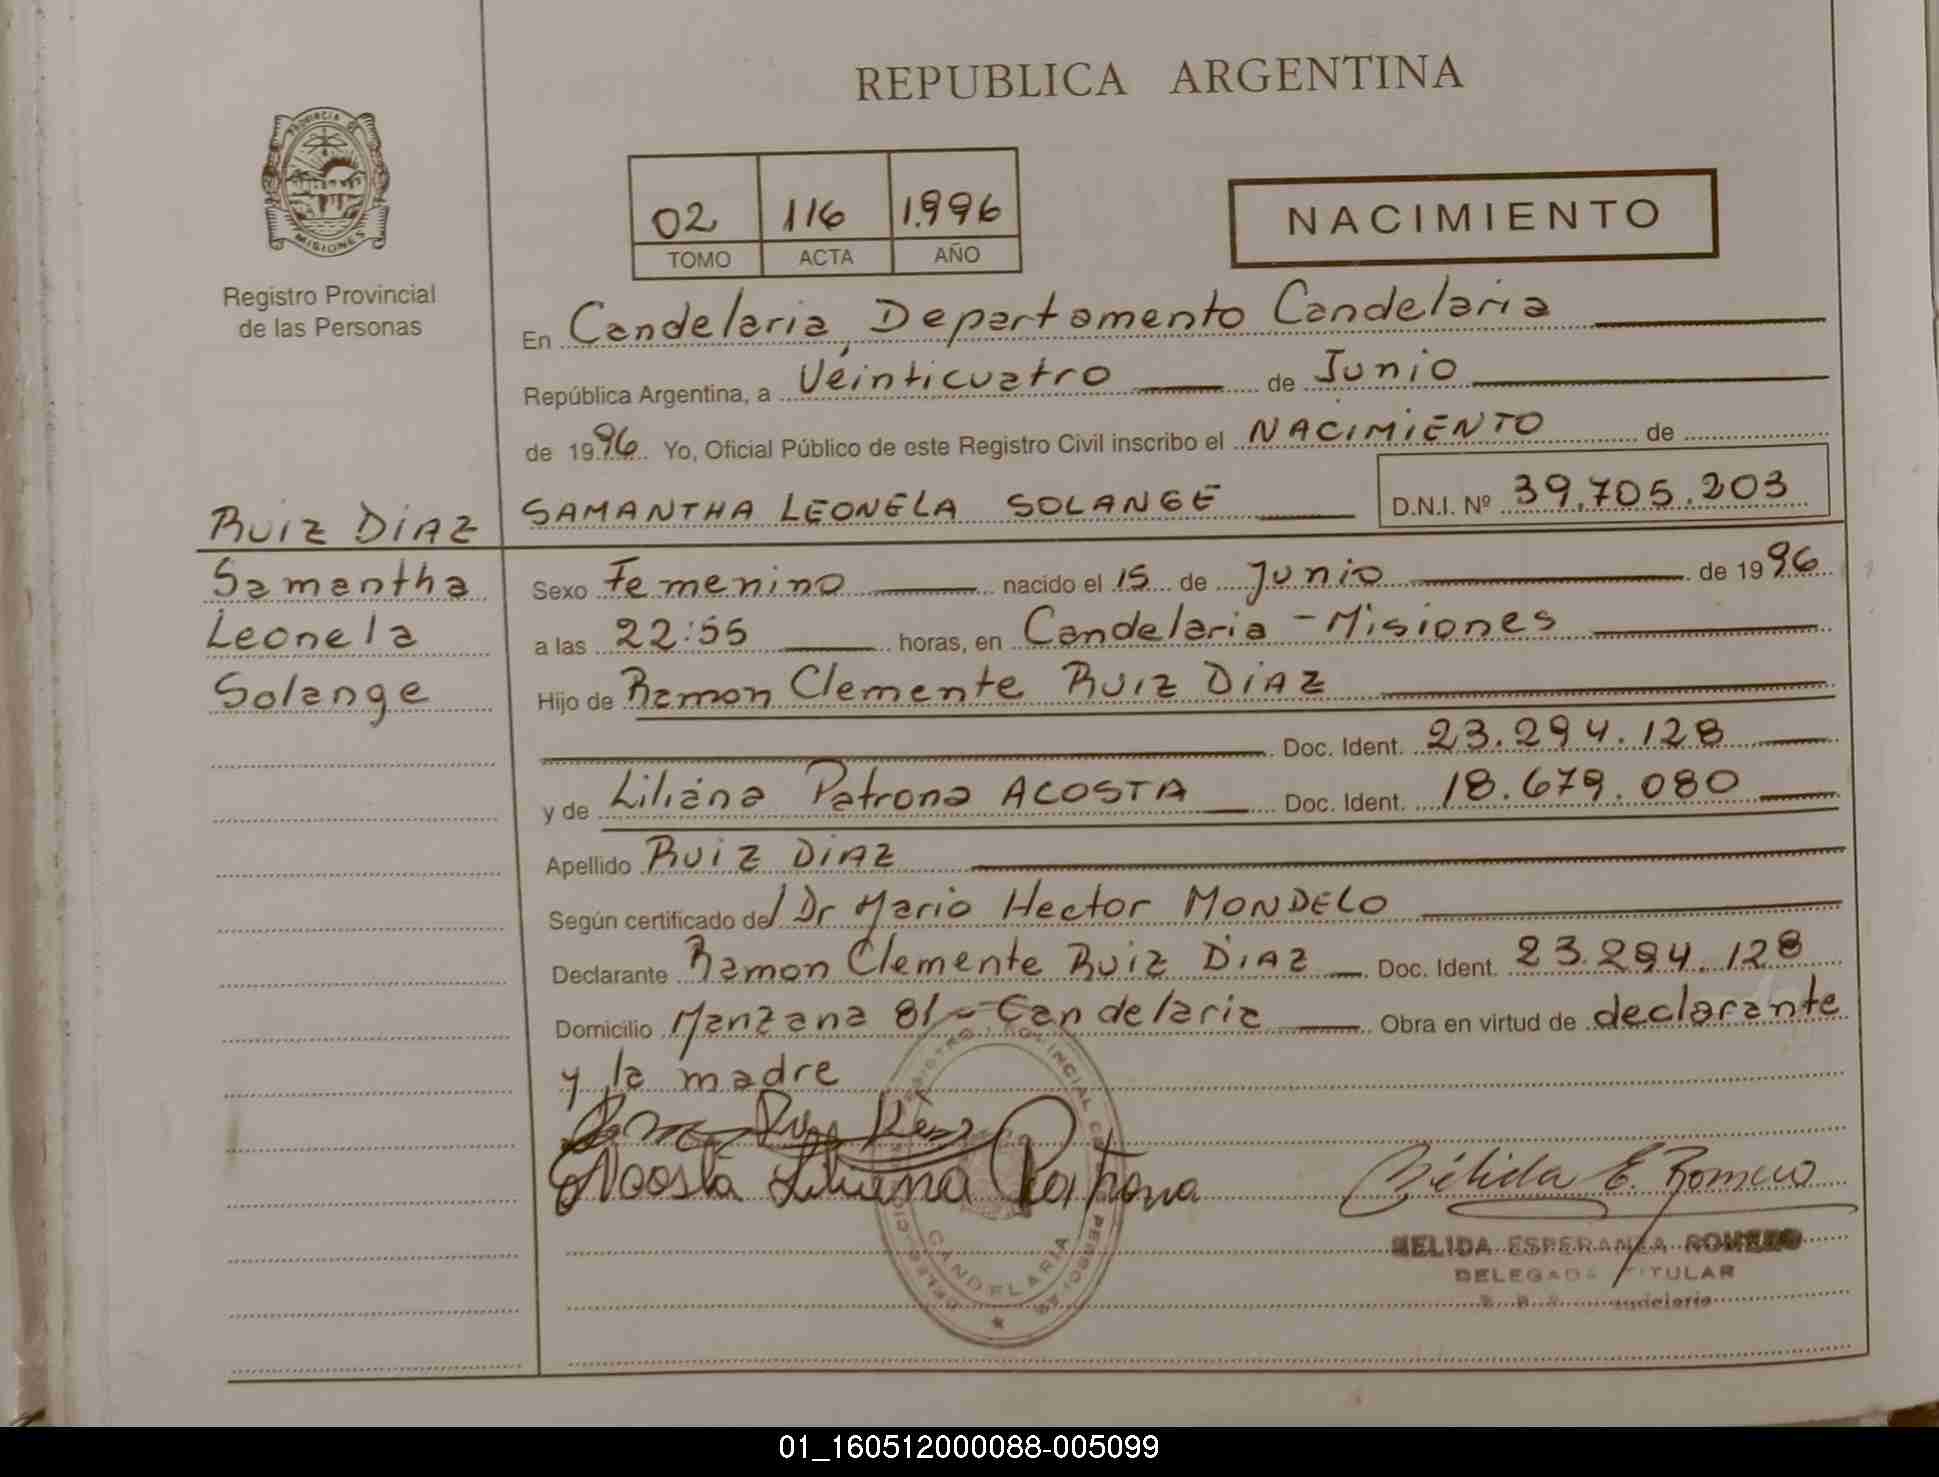 REPUBLICA ARGENTINA
PROVINCIA DE
MISIONES
Registro Provincial
de las Personas
02 116 1.996
TOMO ACTA AÑO
NACIMIENTO
En Candelaria, Departamento Candelaria
República Argentina, a Veinticuatro de Junio
de 1996 Yo, Oficial Público de este Registro Civil inscribo el NACIMIENTO de
SAMANTHA LEONELA SOLANGE D.N.I. Nº 39.705.203
RUIZ DIAZ
Samantha
Leonela
Solange
Sexo Femenino nacido el 15 de Junio de 1996
a las 22:55 horas, en Candelaria - Misiones
Hijo de Ramon Clemente RUIZ DIAZ
Doc. Ident. 23.294.128
y de Liliana Patrona ACOSTA Doc. Ident. 18.679.080
Apellido RUIZ DIAZ
Según certificado de/ Dr Mario Hector MONDELO
Declarante Ramon Clemente RUIZ DIAZ Doc. Ident. 23.294.128
Domicilio Manzana 81 - Candelaria Obra en virtud de declarante
y la madre
Acosta Liliana Patrona
Nélida E. Romero
NELIDA ESPERANZA ROMERO
DELEGADA TITULAR
Candelaria
REGISTRO PROVINCIAL DE LAS PERSONAS
DELEGACION
CANDELARIA
01_160512000088-005099